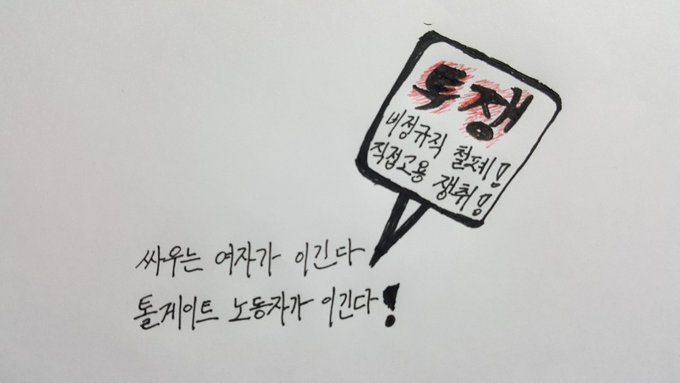 투쟁
비정규직 철폐!
직접고용 쟁취!
싸우는 여자가 이긴다
톨게이트 노동자가 이긴다!